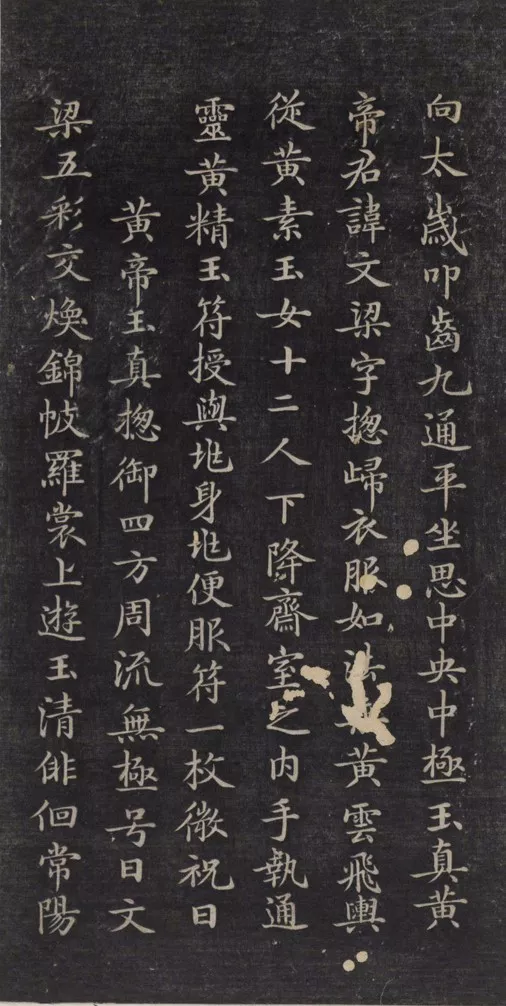 向太歲叩齒九通平坐思中央中極玉真黃
帝君諱文梁字揔歸衣服如法黃雲飛輿
從黃素玉女十二人下降齋室之內手執通
靈黃精玉符授與兆身兆便服符一枚微祝曰
黃帝玉真揔御四方周流無極号曰文
梁五彩交煥錦帔羅裳上遊玉清俳佪常陽